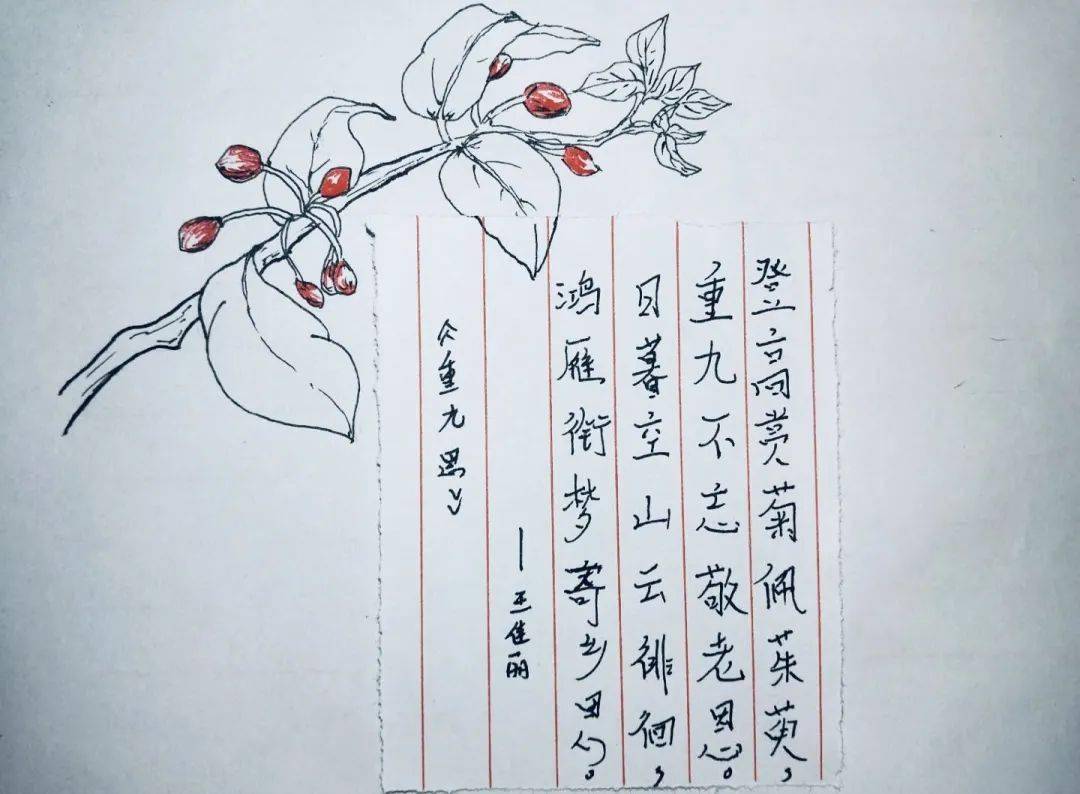 登高赏菊佩茱萸，
重九不忘敬老恩。
日暮空山云徘徊，
鸿雁衔梦寄乡思。
—王佳丽
《重九思》